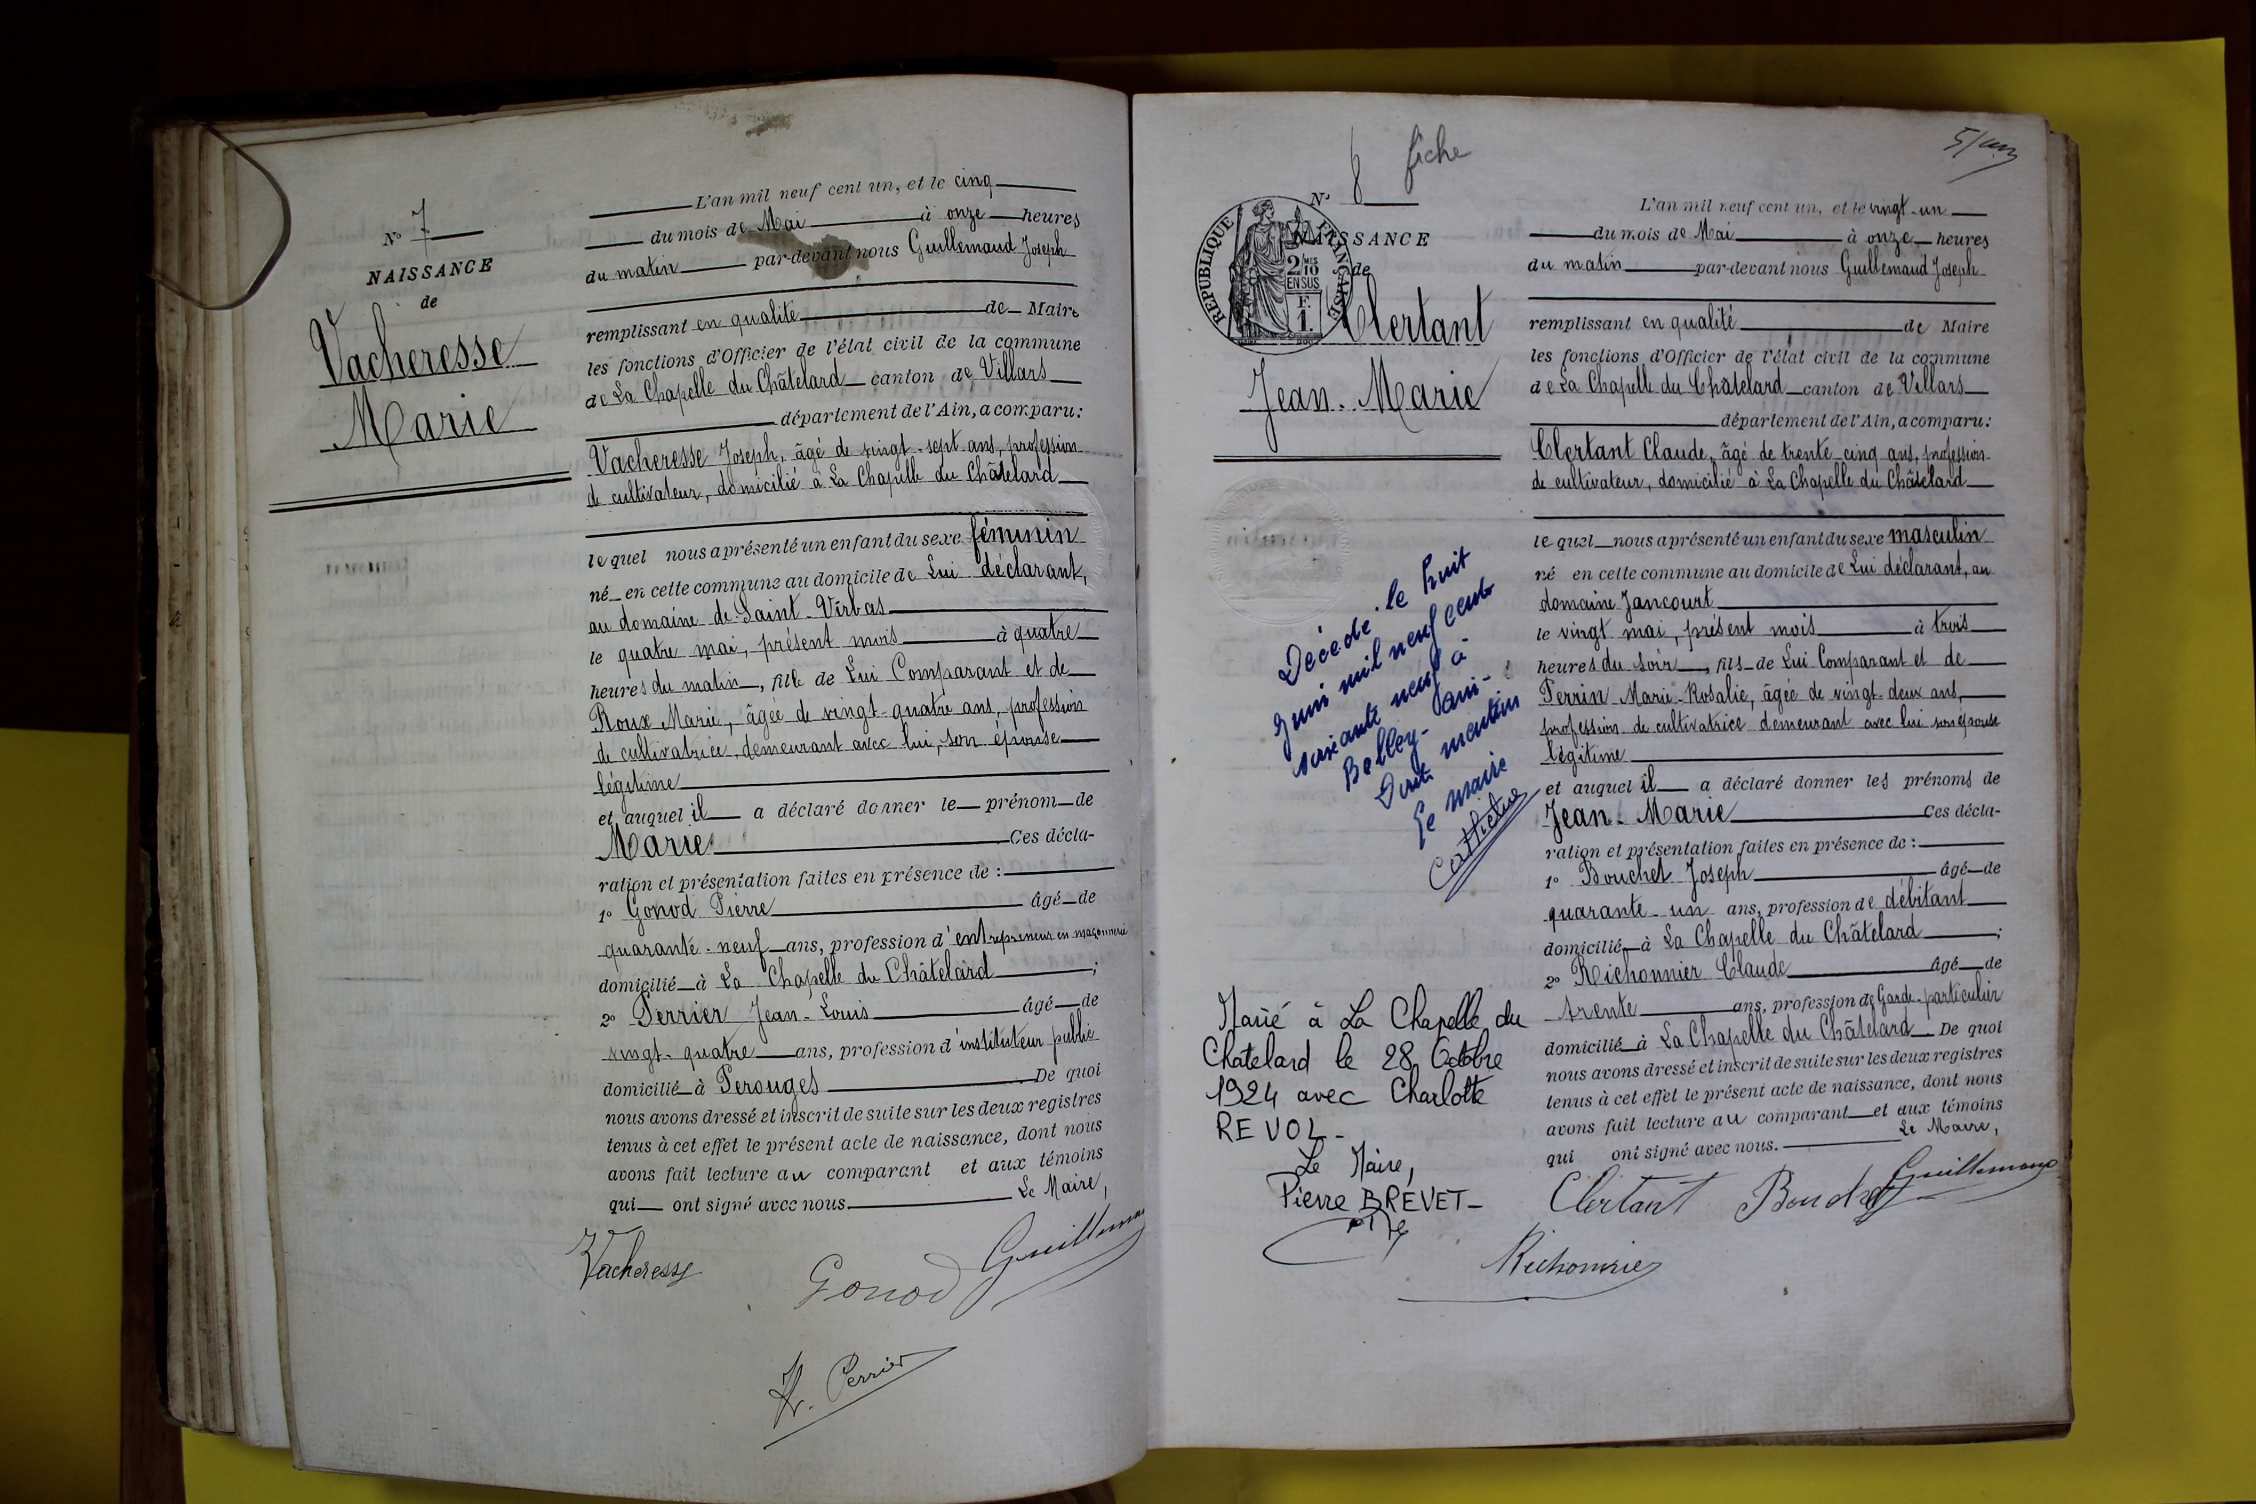 N° 7
NAISSANCE
de
Vacheresse
Marie
L'an mil neuf cent un, et le cinq
du mois de Mai à onze heures
du matin par-devant nous Guillemaud Joseph
remplissant en qualité de Maire
les fonctions d'Officier de l'état civil de la commune
de La Chapelle du Châtelard canton de Villars
département de l'Ain, a comparu:
Vacheresse Joseph, âgé de vingt-sept ans, profession
de cultivateur, domicilié à La Chapelle du Châtelard
lequel nous a présenté un enfant du sexe féminin
né en cette commune au domicile de Lui déclarant,
au domaine de Saint-Virbas
le quatre mai, présent mois à quatre
heures du matin, fille de Lui Comparant et de
Roux Marie, âgée de vingt-quatre ans, profession
de cultivatrice, demeurant avec lui, son épouse
légitime
et auquel il a déclaré donner le prénom de
Marie Ces décla-
ration et présentation faites en présence de :
1° Gonod Pierre âgé de
quarante-neuf ans, profession d'entrepreneur en maçonnerie
domicilié à La Chapelle du Châtelard ;
2° Perrier Jean-Louis âgé de
vingt-quatre ans, profession d'instituteur public
domicilié à Perouges De quoi
nous avons dressé et inscrit de suite sur les deux registres
tenus à cet effet le présent acte de naissance, dont nous
avons fait lecture au comparant et aux témoins
qui ont signé avec nous. Le Maire,
Vacheresse Gonod Guillemaud
Perrier
fiche
N° 8
RÉPUBLIQUE FRANÇAISE
2/10 MES
EN SUS
F.
1.
NAISSANCE
de
Clertant
Jean-Marie
Décédé le huit
Juin mil neuf cent
soixante neuf à
Belley - Ain -
Dont mention
Le maire
Marié à La Chapelle du
Chatelard le 28 Octobre
1924 avec Charlotte
REVOL -
Le Maire,
Pierre BREVET -
L'an mil neuf cent un, et le vingt-un
du mois de Mai à onze heures
du matin par-devant nous Guillemaud Joseph
remplissant en qualité de Maire
les fonctions d'Officier de l'état civil de la commune
de La Chapelle du Châtelard canton de Villars
département de l'Ain, a comparu:
Clertant Claude, âgé de trente-cinq ans, profession
de cultivateur, domicilié à La Chapelle du Châtelard
lequel nous a présenté un enfant du sexe masculin
né en cette commune au domicile de Lui déclarant, au
domaine Jancourt
le vingt mai, présent mois à trois
heures du soir, fils de Lui Comparant et de
Perrin Marie-Rosalie, âgée de vingt-deux ans,
profession de cultivatrice demeurant avec lui son épouse
légitime
et auquel il a déclaré donner les prénoms de
Jean-Marie Ces décla-
ration et présentation faites en présence de :
1° Bouchet Joseph âgé de
quarante-un ans, profession de débitant
domicilié à La Chapelle du Châtelard ;
2° Richonnier Claude âgé de
trente ans, profession de Garde-particulier
domicilié à La Chapelle du Châtelard De quoi
nous avons dressé et inscrit de suite sur les deux registres
tenus à cet effet le présent acte de naissance, dont nous
avons fait lecture au comparant et aux témoins
qui ont signé avec nous. Le Maire,
Clertant Bouchet Guillemaud
Richonnier